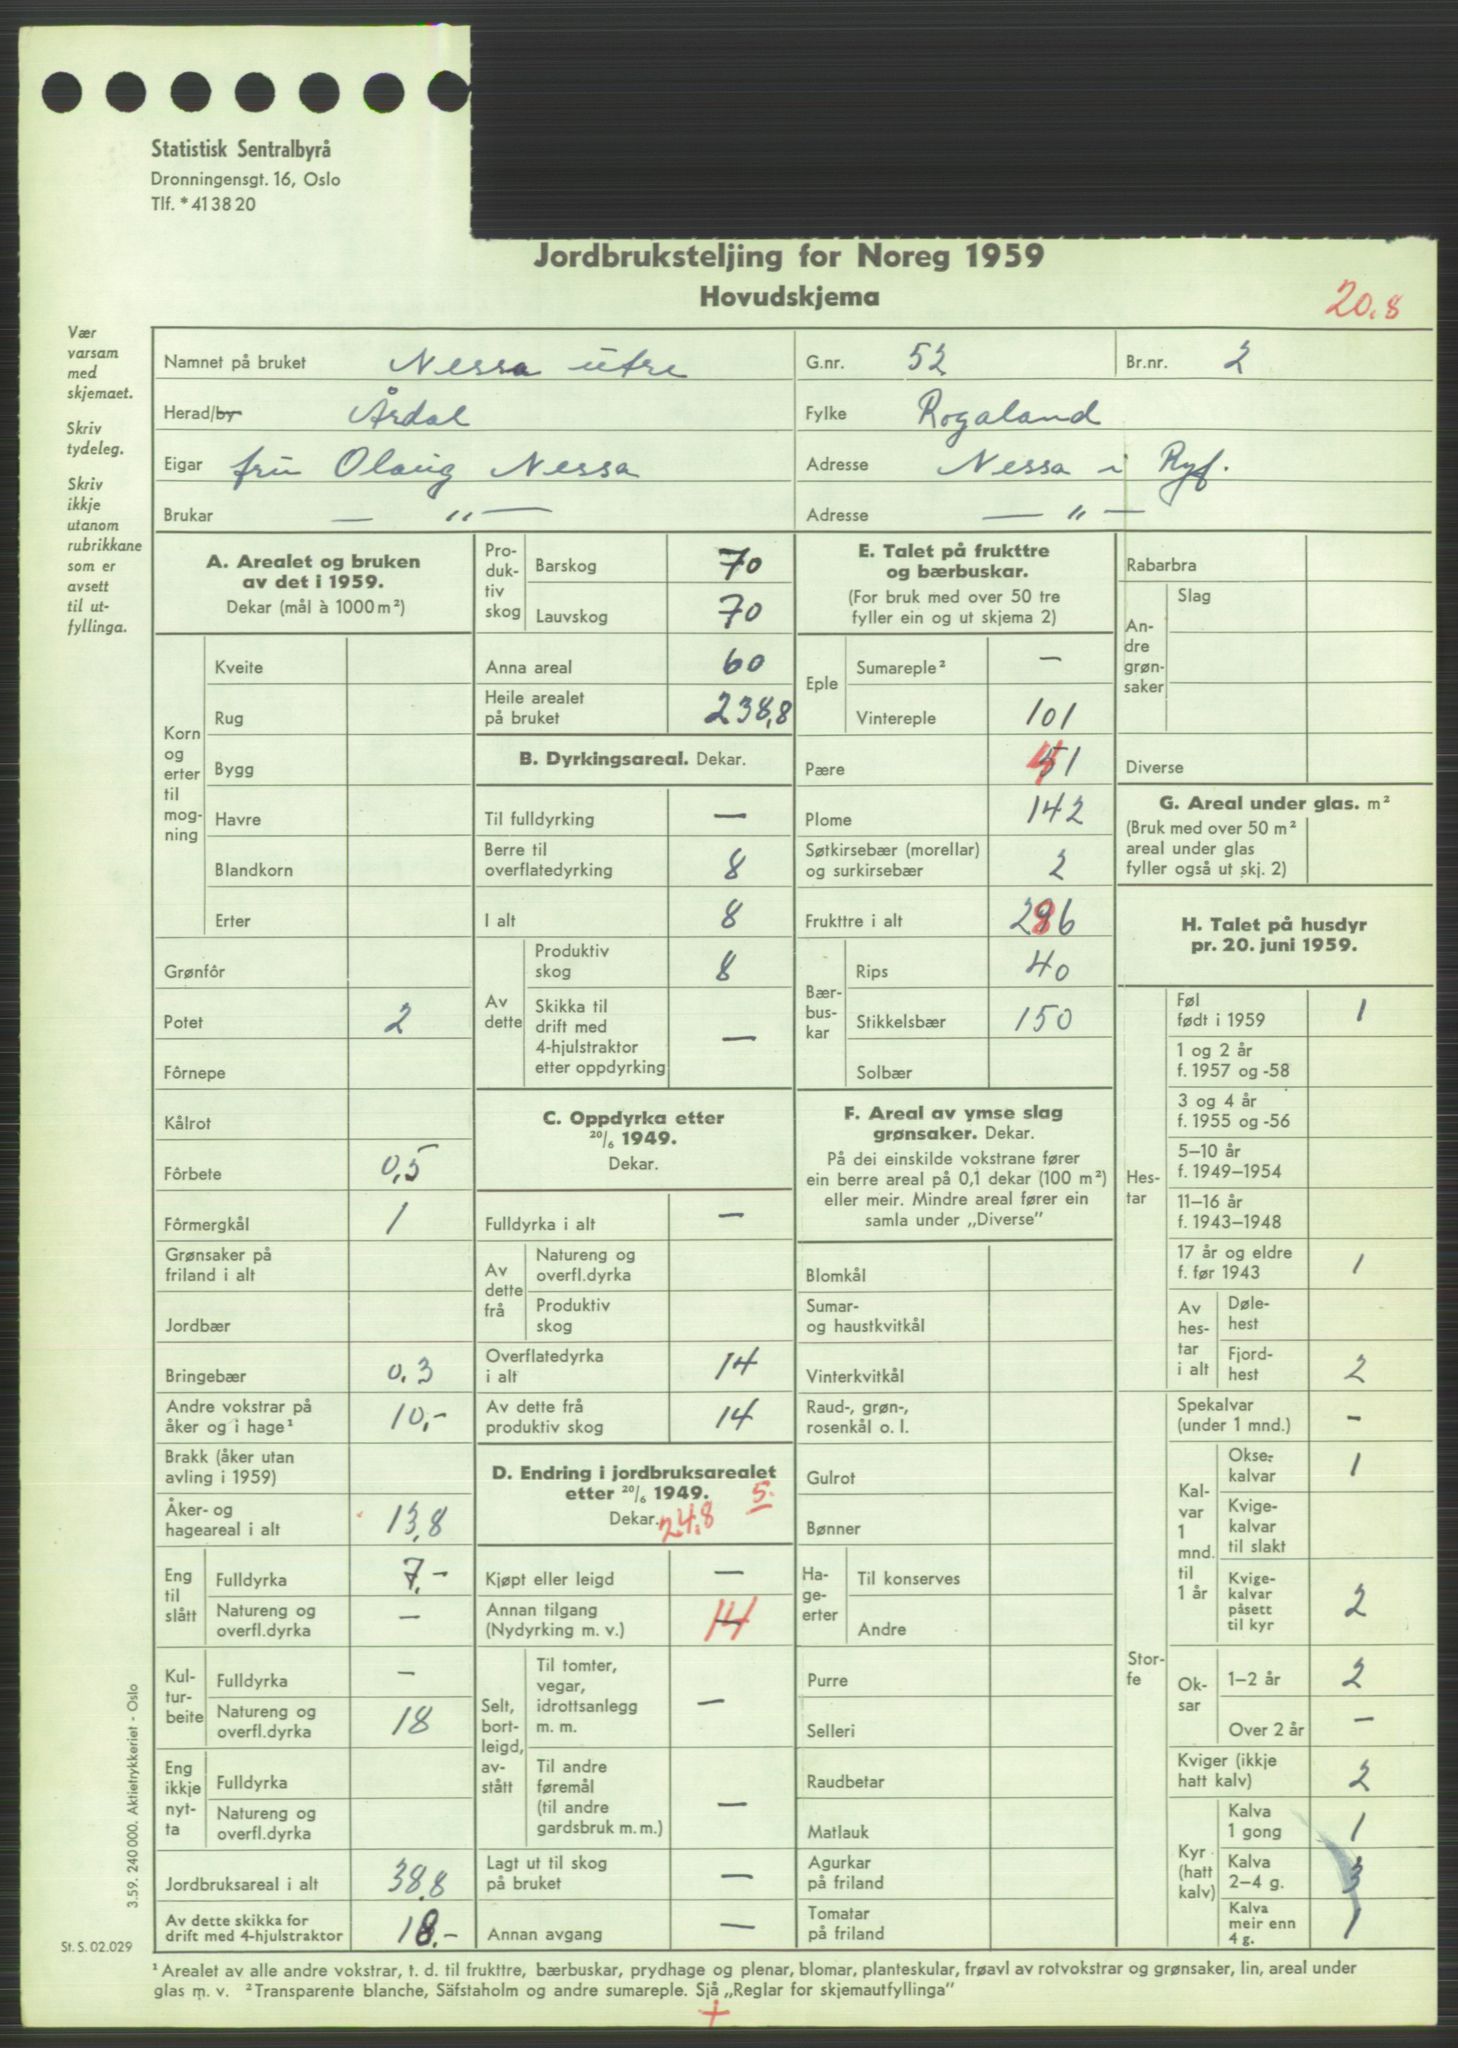 Statistisk Sentralbyrå
Dronningensgt. 16, Oslo
Tlf. *41 38 20
Jordbruksteljing for Noreg 1959
Hovudskjema
20.8
Vær
varsam
med
skjemaet.
Skriv
tydeleg.
Skriv
ikkje
utanom
rubrikkane
som er
avsett
til ut-
fyllinga.
Namnet på bruket Nessa ütre G.nr. 52 Br.nr. 2
Herad/by Årdal Fylke Rogaland
Eigar frü Olaüg Nessa Adresse Nessa i Ryf.
Brukar — „ — Adresse — „ —
A. Arealet og bruken
av det i 1959.
Dekar (mål à 1000 m²)
Korn
og
erter
til
mog-
ning
Kveite
Rug
Bygg
Havre
Blandkorn
Erter
Grønfôr
Potet 2
Fôrnepe
Kålrot
Fôrbete 0,5
Fôrmergkål 1
Grønsaker på
friland i alt
Jordbær
Bringebær 0.3
Andre vokstrar på
åker og i hage¹ 10,-
Brakk (åker utan
avling i 1959)
Åker- og
hageareal i alt 13,8
Eng
til
slått
Fulldyrka 7.-
Natureng og
overfl.dyrka —
Kul-
tur-
beite
Fulldyrka —
Natureng og
overfl.dyrka 18
Eng
ikkje
nyt-
ta
Fulldyrka
Natureng og
overfl.dyrka
Jordbruksareal i alt 38.8
Av dette skikka for
drift med 4-hjulstraktor 18.-
Pro-
duk-
tiv
skog
Barskog 70
Lauvskog 70
Anna areal 60
Heile arealet
på bruket 238,8
B. Dyrkingsareal. Dekar.
Til fulldyrking —
Berre til
overflatedyrking 8
I alt 8
Av
dette
Produktiv
skog 8
Skikka til
drift med
4-hjulstraktor
etter oppdyrking —
C. Oppdyrka etter
20/6 1949.
Dekar.
Fulldyrka i alt —
Av
dette
frå
Natureng og
overfl.dyrka
Produktiv
skog
Overflatedyrka
i alt 14
Av dette frå
produktiv skog 14
D. Endring i jordbruksarealet
etter 20/6 1949. 5.
Dekar. 24.8
Kjøpt eller leigd —
Annan tilgang
(Nydyrking m. v.) 14
Selt,
bort-
leigd,
av-
stått
Til tomter,
vegar,
idrottsanlegg
m. m. —
Til andre
føremål
(til andre
gardsbruk m. m.) —
Lagt ut til skog
på bruket —
Annan avgang —
E. Talet på frukttre
og bærbuskar.
(For bruk med over 50 tre
fyller ein og ut skjema 2)
Eple
Sumareple² —
Vintereple 101
Pære 51
Plome 142
Søtkirsebær (morellar)
og surkirsebær 2
Frukttre i alt 286
Bær-
bus-
kar
Rips 40
Stikkelsbær 150
Solbær
F. Areal av ymse slag
grønsaker. Dekar.
På dei einskilde vokstrane fører
ein berre areal på 0,1 dekar (100 m²)
eller meir. Mindre areal fører ein
samla under „Diverse”
Blomkål
Sumar-
og haustkvitkål
Vinterkvitkål
Raud-, grøn-,
rosenkål o. l.
Gulrot
Bønner
Ha-
ge-
erter
Til konserves
Andre
Purre
Selleri
Raudbetar
Matlauk
Agurkar
på friland
Tomatar
på friland
Rabarbra
An-
dre
grøn-
saker
Slag
Diverse
G. Areal under glas. m²
(Bruk med over 50 m²
areal under glas
fyller også ut skj. 2)
H. Talet på husdyr
pr. 20. juni 1959.
Hes-
tar
Føl
født i 1959 1
1 og 2 år
f. 1957 og -58
3 og 4 år
f. 1955 og -56
5–10 år
f. 1949–1954
11–16 år
f. 1943–1948
17 år og eldre
f. før 1943 1
Av
hes-
tar
i alt
Døle-
hest
Fjord-
hest 2
Stor-
fe
Spekalvar
(under 1 mnd.) –
Kal-
var
1
mnd.
til
1 år
Okse-
kalvar 1
Kvige-
kalvar
til slakt
Kvige-
kalvar
påsett
til kyr 2
Ok-
sar
1–2 år 2
Over 2 år —
Kviger (ikkje
hatt kalv) 2
Kyr
(hatt
kalv)
Kalva
1 gong 1
Kalva
2–4 g. 3
Kalva
meir enn
4 g. 1
3.59. 240 000. Aktietrykkeriet - Oslo
St. S. 02.029
¹ Arealet av alle andre vokstrar, t. d. til frukttre, bærbuskar, prydhage og plenar, blomar, planteskular, frøavl av rotvokstrar og grønsaker, lin, areal under
glas m. v. ² Transparente blanche, Säfstaholm og andre sumareple. Sjå „Reglar for skjemautfyllinga”
+